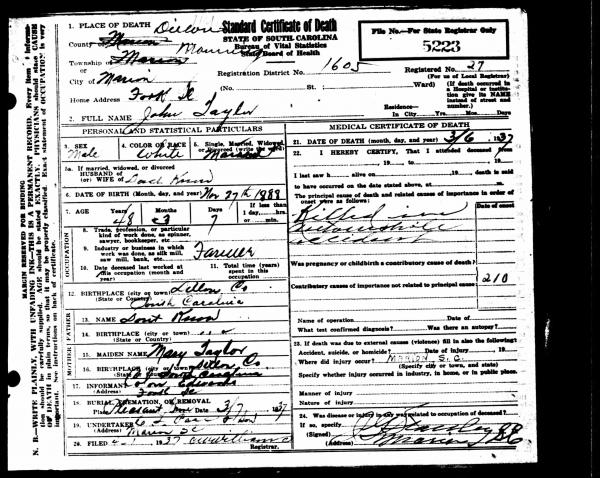 1. PLACE OF DEATH Dillon
County of Marion
Township of Marion
or
City of Marion
Home Address Fork SC
2. FULL NAME John Taylor
Standard Certificate of Death
STATE OF SOUTH CAROLINA
Bureau of Vital Statistics
State Board of Health
Registration District No. 1605
(No. St.; Ward)
File No.—For State Registrar Only
5223
Registered No. 27
(For use of Local Registrar)
(If death occurred in
a Hospital or Institu-
tion give its NAME
instead of street and
number.)
Residence—
In City Yrs. Mos. Days
PERSONAL AND STATISTICAL PARTICULARS
3. SEX
Male
4. COLOR OR RACE
White
5. Single, Married, Widowed,
5a. If married, widowed, or divorced
HUSBAND of
(or) WIFE of
6. DATE OF BIRTH (Month, day, and year) Nov 27th 1888
7. AGE Years Months Days If less than
1 day, hrs.
or min.
48 3 7
OCCUPATION
8. Trade, profession, or particular
kind of work done, as spinner,
sawyer, bookkeeper, etc.
9. Industry or business in which
work was done, as silk mill,
saw mill, bank, etc.
Farmer
10. Date deceased last worked at
this occupation (month and
year)
11. Total time (years)
spent in this
occupation
12. BIRTHPLACE (city or town) Dillon Co
(State or Country) South Carolina
FATHER
13. NAME
14. BIRTHPLACE (city or town)
(State or Country)
MOTHER
15. MAIDEN NAME Mary Taylor
16. BIRTHPLACE (city or town) Dillon Co.
(State or Country) South Carolina
17. INFORMANT Edwards
(Address) Fork SC
18. BURIAL, CREMATION, OR REMOVAL
Place Pleasant Date 3/7 1937
19. UNDERTAKER
(Address) Marion SC
20. FILED 1937
Registrar.
MEDICAL CERTIFICATE OF DEATH
21. DATE OF DEATH (month, day, and year) 3/6 1937
22. I HEREBY CERTIFY, That I attended deceased from
, 19 to , 19
I last saw h alive on , 19 death is said
to have occurred on the date stated above, at m.
The principal cause of death and related causes of importance in order of
onset were as follows:
Date of onset
Killed in
Automobile
accident
Was pregnancy or childbirth a contributory cause of death?
Contributory causes of importance not related to principal cause:
210
Name of operation Date of
What test confirmed diagnosis? Was there an autopsy?
23. If death was due to external causes (violence) fill in also the following:
Accident, suicide, or homicide? Date of injury 19
Where did injury occur? MARION S.C.
(Specify city or town, and state)
Specify whether injury occurred in industry, in home, or in public place.
Manner of injury
Nature of injury
24. Was disease or injury in any way related to occupation of deceased?
If so, specify
(Signed)
(Address) Marion SC
MARGIN RESERVED FOR BINDING
N. B.—WRITE PLAINLY, WITH UNFADING INK—THIS IS A PERMANENT RECORD. Every item of information should be carefully supplied. AGE should be stated EXACTLY. PHYSICIANS should state CAUSE OF DEATH in plain terms, so that it may be properly classified. Exact statement of OCCUPATION is very important. See instructions on back of certificate.